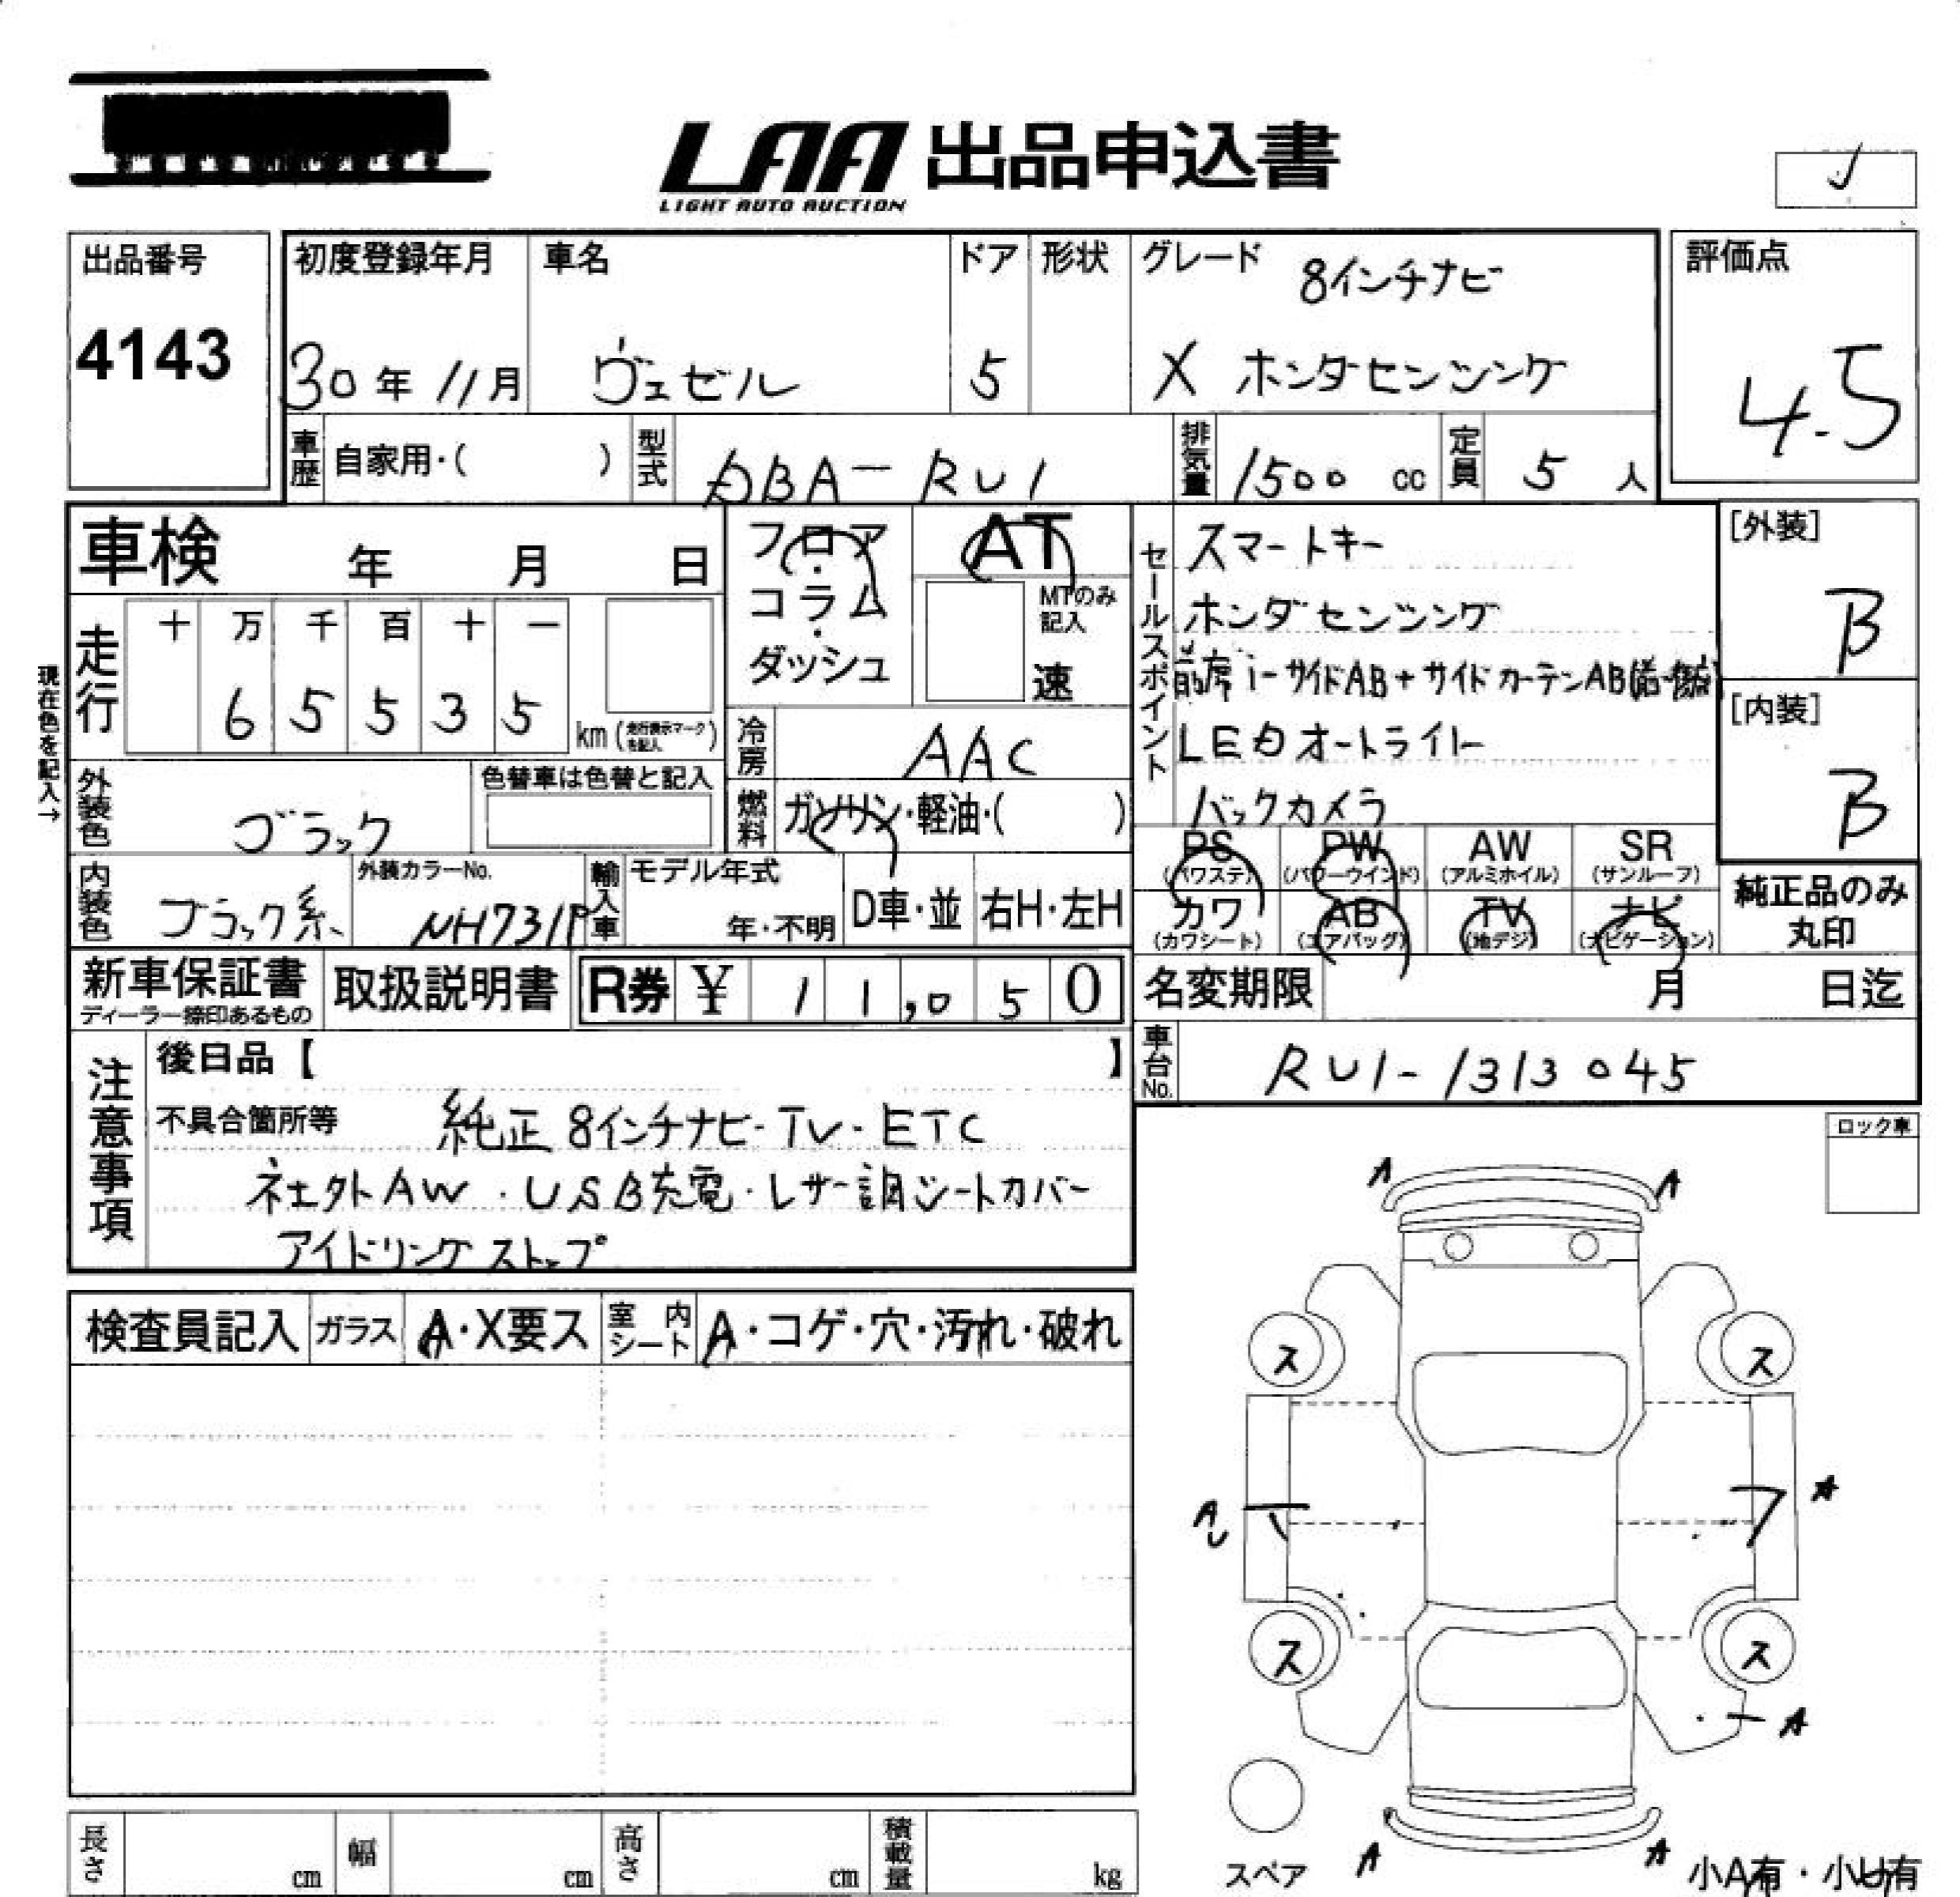 LAA 出品申込書
LIGHT AUTO AUCTION
出品番号
4143
初度登録年月
30年 11月
車名
ヴェゼル
ドア
5
形状
グレード 8インチナビ
X ホンダセンシング
評価点
4.5
車歴 自家用・( )
型式 DBA-RU1
排気量 1500 cc
定員 5 人
車検 年 月 日
フロア・コラム・ダッシュ
AT
MTのみ記入
速
セールスポイント
スマートキー
ホンダセンシング
前席i-サイドAB+サイドカーテンAB
LEDオートライト
バックカメラ
[外装]
B
[内装]
B
現在色を記入→
走行
十 万 千 百 十 一
6 5 5 3 5
km (走行表示マークを記入)
冷房 AAC
外装色 ブラック
色替車は色替と記入
燃料 ガソリン・軽油・( )
内装色 ブラック系
外装カラーNo.
NH731P
輸入車
モデル年式
年・不明
D車・並
右H・左H
PS (パワステ)
PW (パワーウインド)
AW (アルミホイル)
SR (サンルーフ)
カワ (カワシート)
AB (エアバッグ)
TV (地デジ)
ナビ (ナビゲーション)
純正品のみ丸印
新車保証書
ディーラー捺印あるもの
取扱説明書
R券 ¥ 11,050
名変期限 月 日迄
車台No. RU1-1313045
注意事項
後日品【 】
不具合箇所等 純正8インチナビ・TV・ETC
社外AW・USB充電・レザー調シートカバー
アイドリングストップ
ロック車
検査員記入
ガラス A・X要ス
室内シート A・コゲ・穴・汚れ・破れ
A A
ス ス
A U A
ス ス
A
A A
スペア
小A有・小U有
長さ cm
幅 cm
高さ cm
積載量 kg